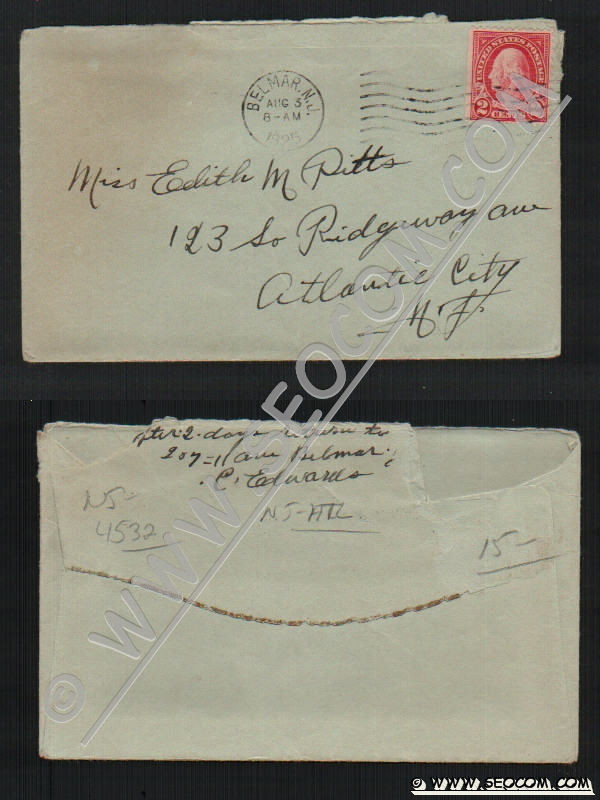 UNITED STATES POSTAGE
2
CENTS
BELMAR, N.J.
AUG 3
8-AM
1925
Miss Edith M Pitts
123 So Ridgeway ave
Atlantic City
N.J.
after 2 days return to
207-11 ave Belmar
C. Edwards
NJ-
4532
NJ-
15-
© WWW.SEOCOM.COM
© WWW.SEOCOM.COM